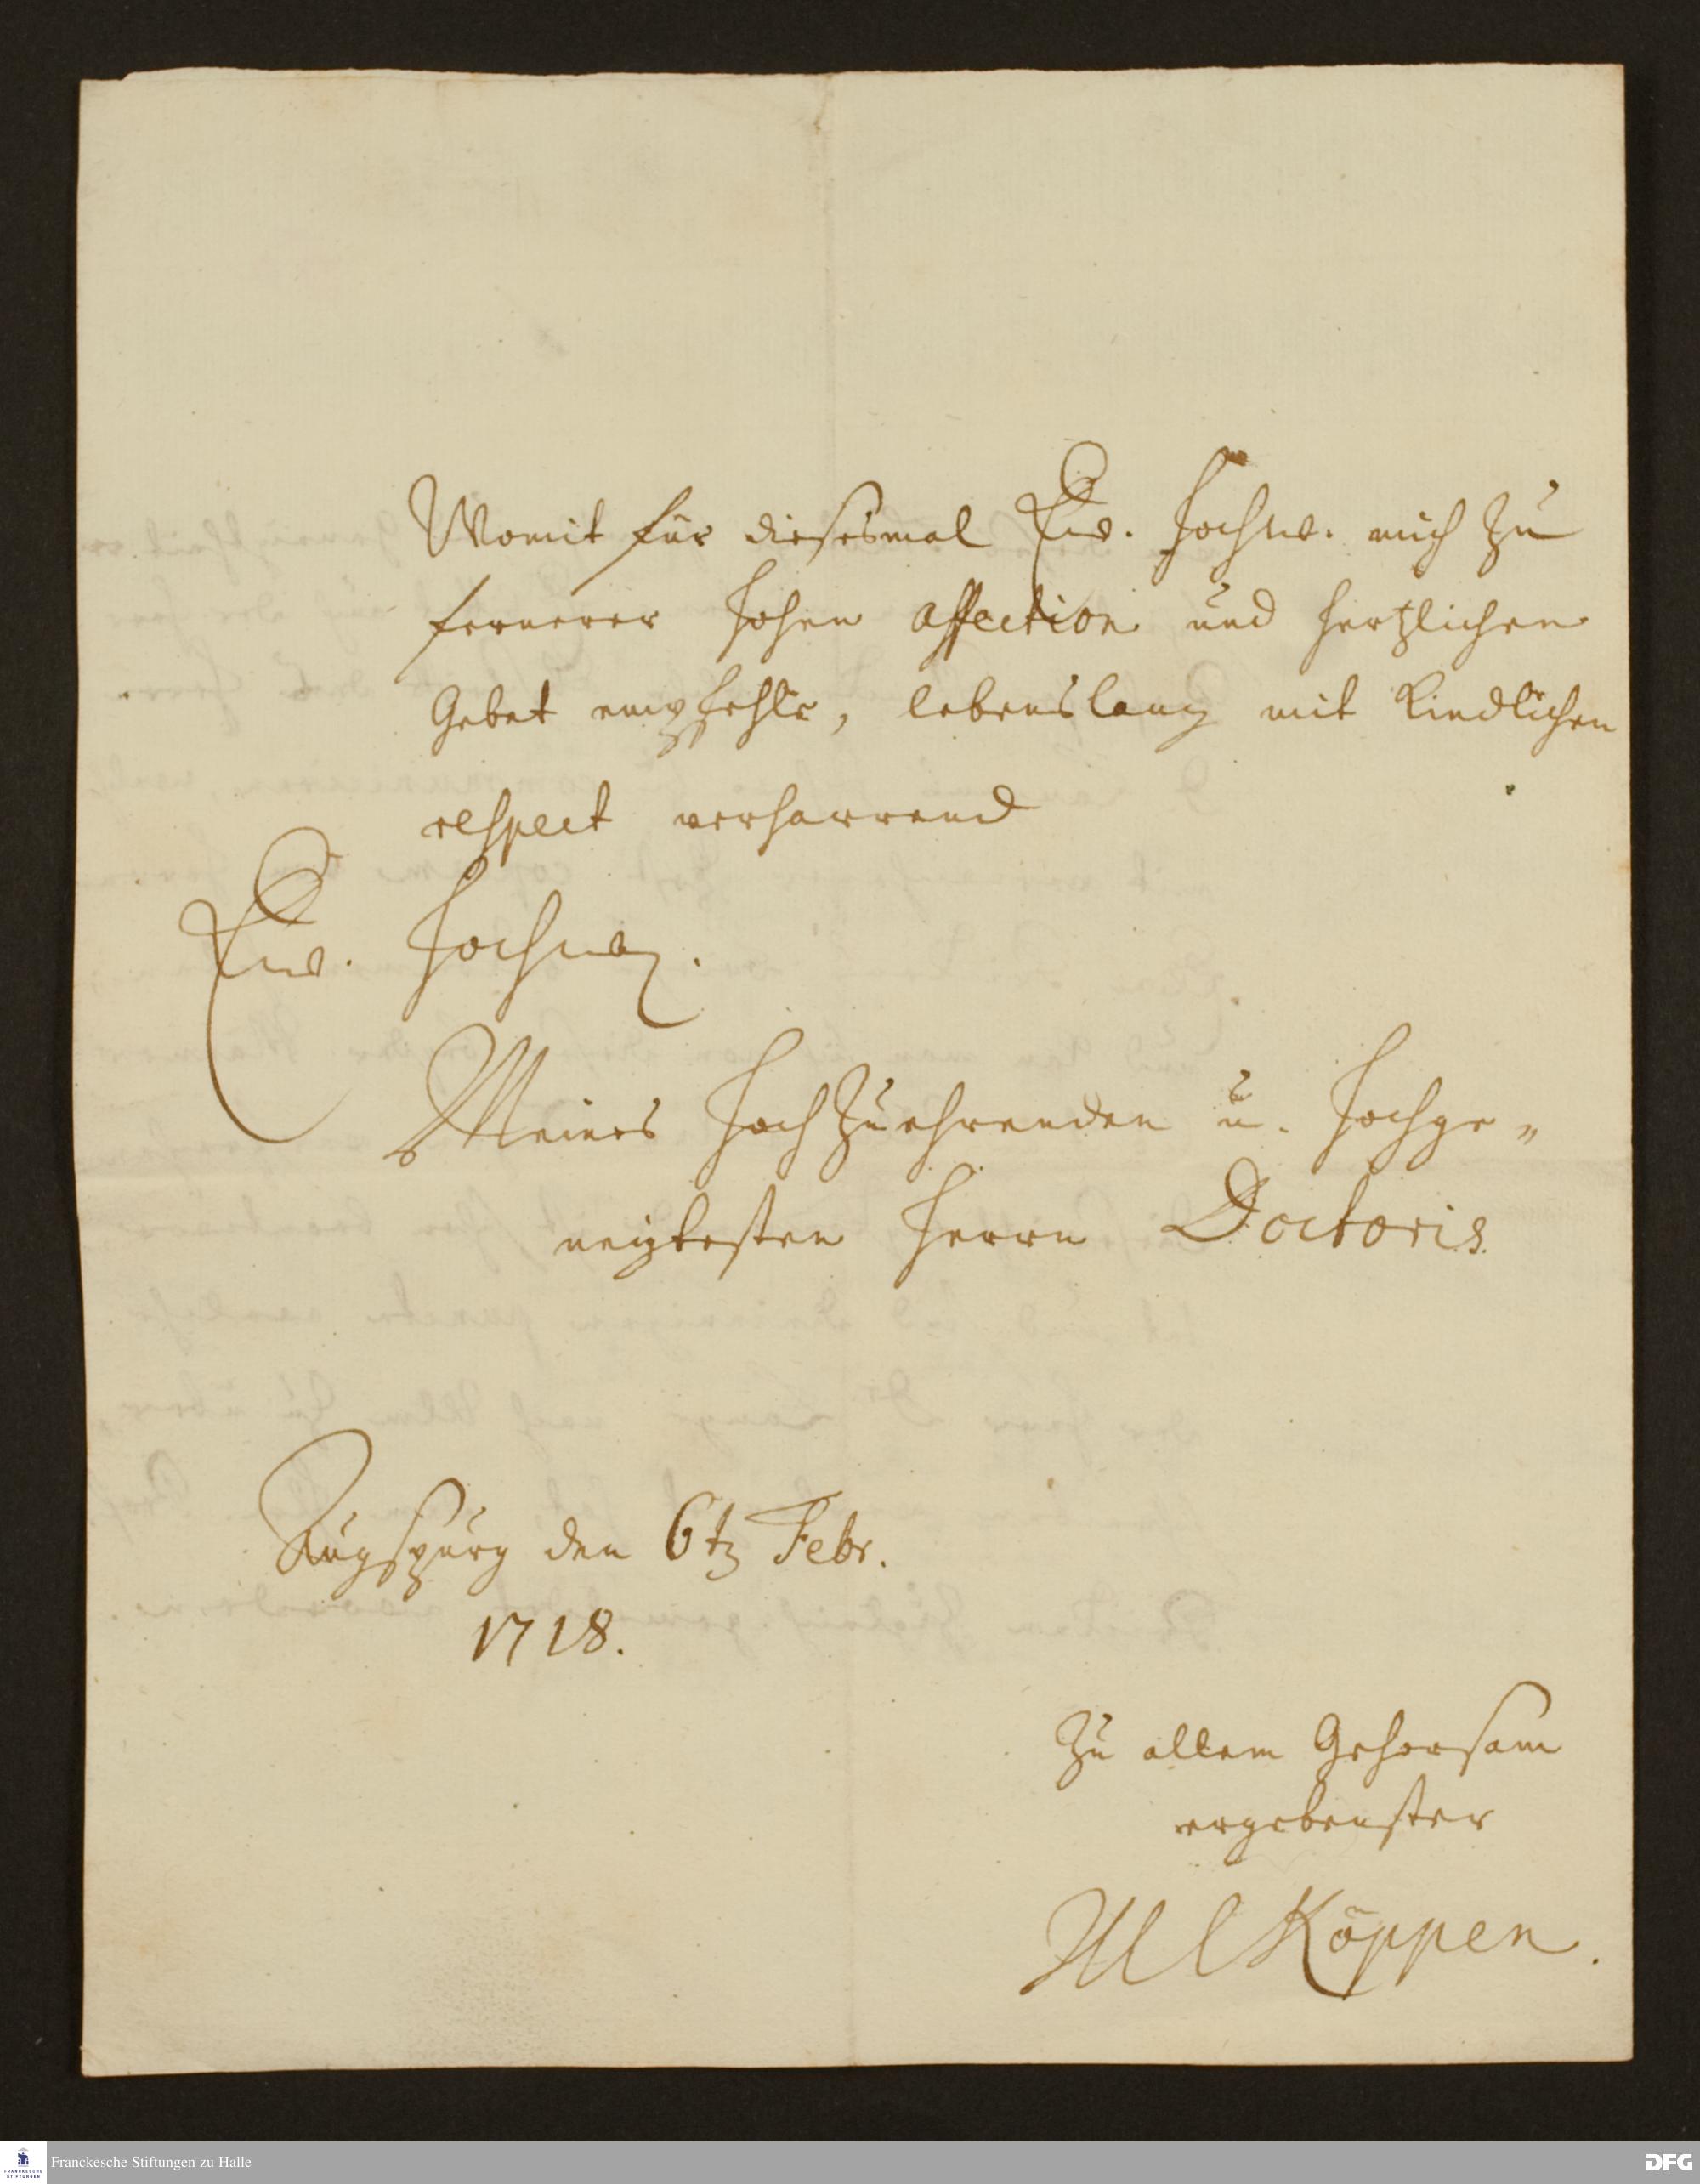 Womit für diesesmal Ew. Hochw. mich zu
fernerer hohen affection und hertzlichen
Gebet empfehle, lebenslang mit kindlichen
respect verharrend
Ew. Hochw.
Meines Hochzuehrenden u. Hochge„
neigtesten Herrn Doctoris.
Augspurg den 6t. Febr.
1718.
Zu allem Gehorsam
ergebenster
Köppen.
Franckesche Stiftungen zu Halle
FRANCKESCHE
STIFTUNGEN
DFG